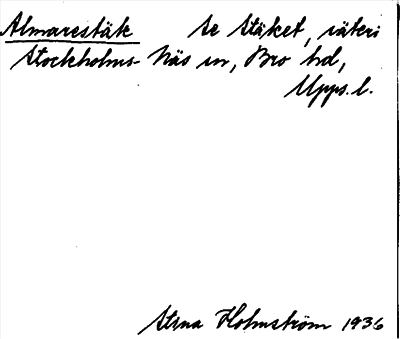 Almarestäk se Stäket, säteri
Stockholms-Näs sn, Bro hd,
Upps. l.
Stina Holmström 1936